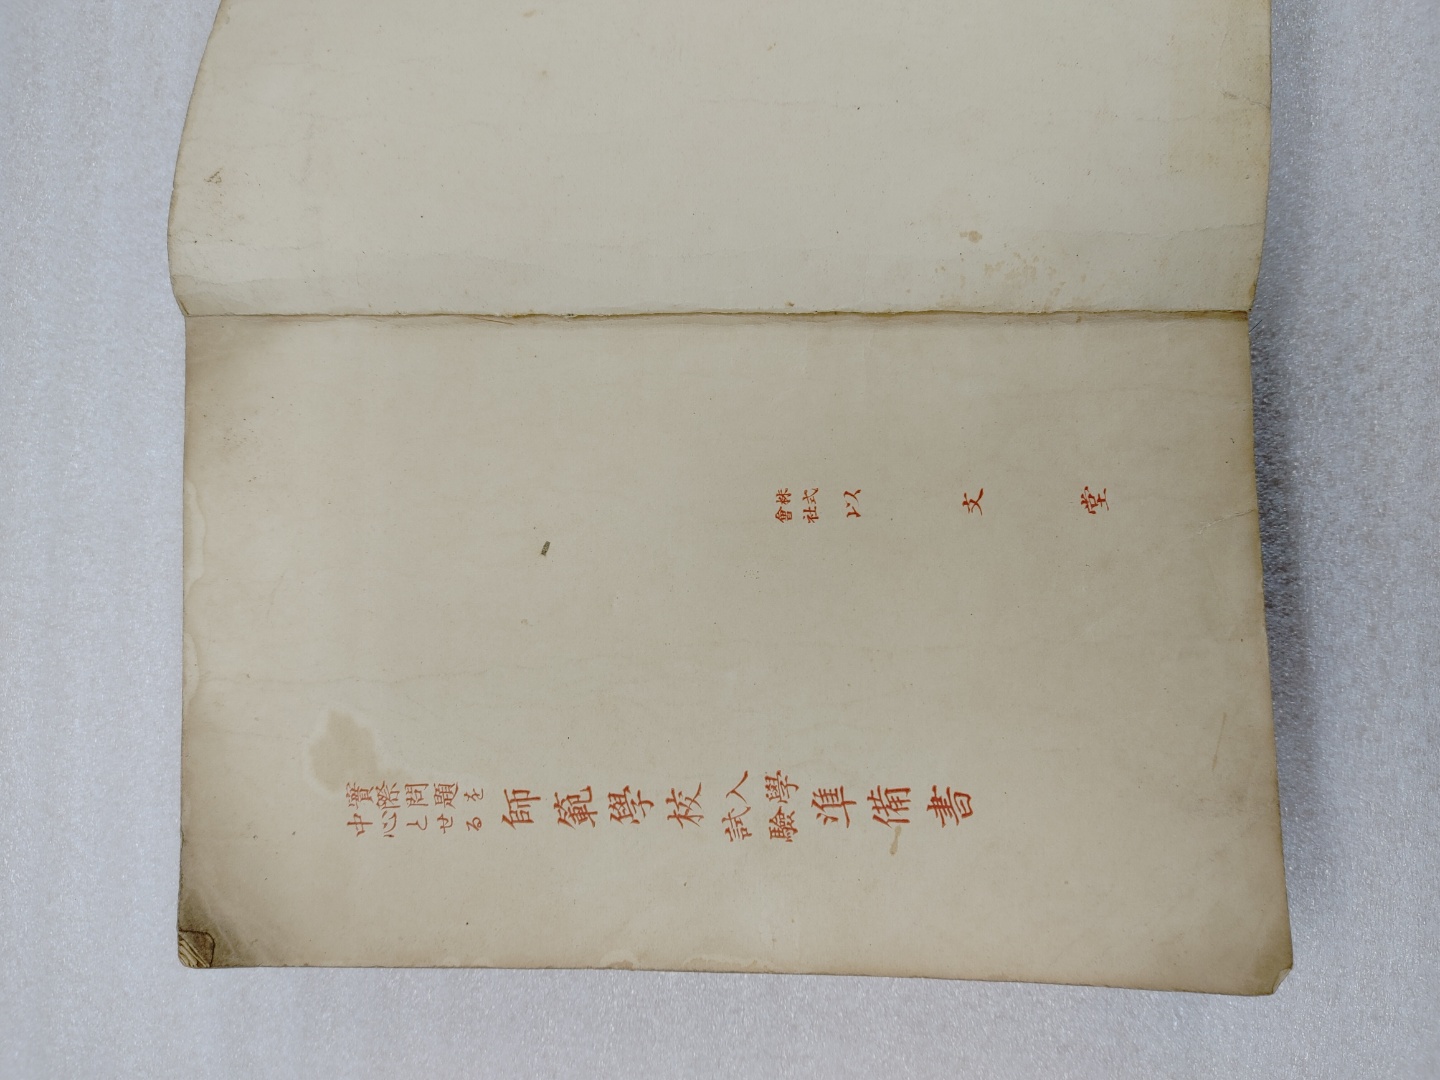 實際問題を
中心とせる
師範學校入學試驗準備書
株式會社以文堂